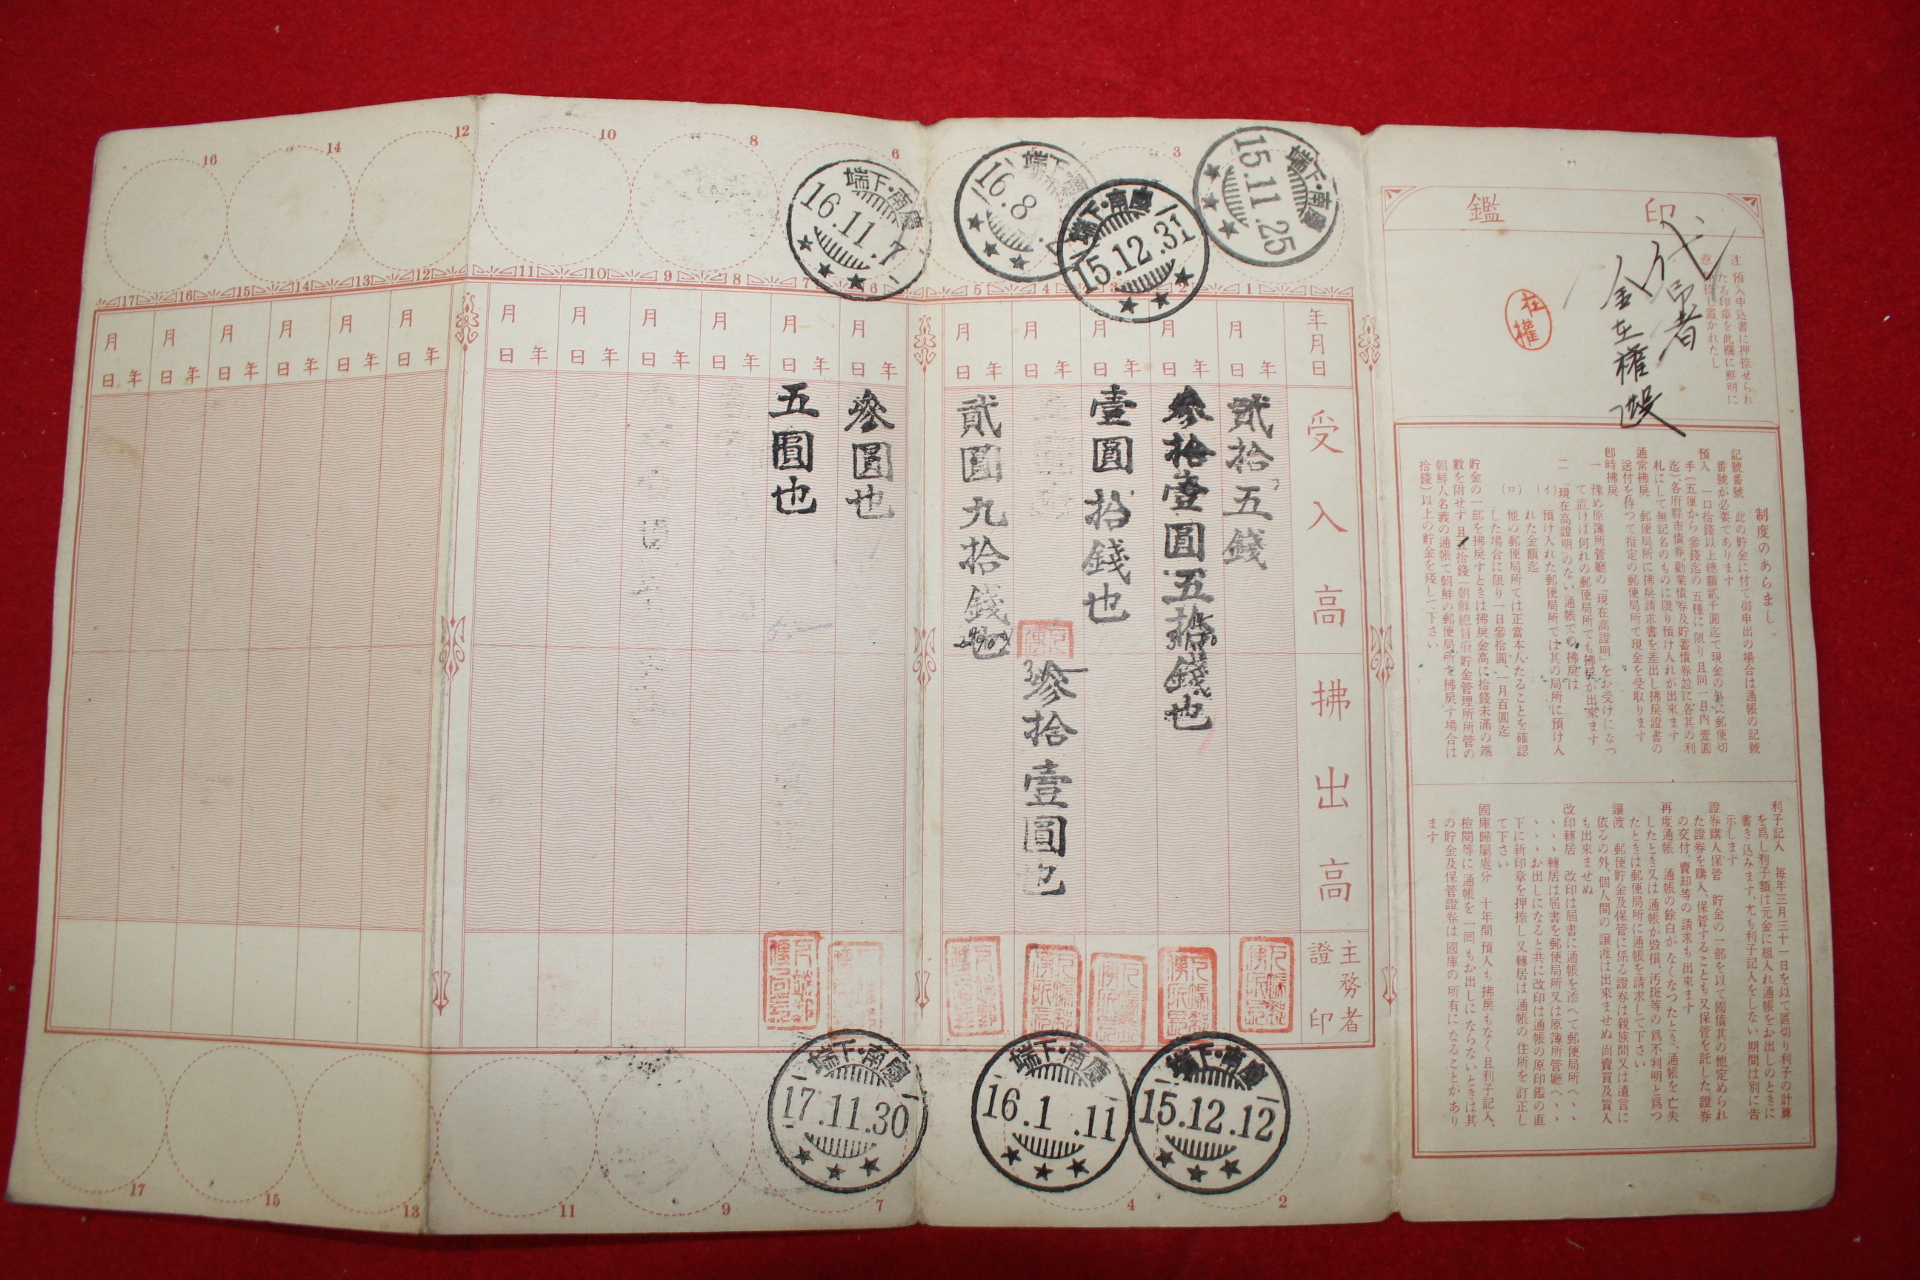 印鑑
注意
預入申込書に押捺せられ
たる印章を此欄に鮮明に
代
金在權
在權
制度のあらまし
記號番號 此の貯金に付て御申出の場合は通帳の記號
番號が必要であります
預入 一口拾錢以上總額貳千圓迄で現金の外に郵便切
手(五厘から參錢迄の五種に限り且同一日內壹圓
迄)各府縣市債券勸業債券及貯蓄債券竝に各其の利
札にして無記名のものに限り預け入れが出來ます
通常拂戾 郵便局所に拂戾請求書を差出し拂戾證書の
送付を待つて指定の郵便局所で現金を受取ります
卽時拂戾
一 豫め原簿所管廳の「現在高證明」をお受けになつ
て置けば何れの郵便局所でも拂戾が出來ます
二 「現在高證明」のない通帳での拂戾は
(イ) 預け入れた郵便局所では其の局所に預け入
れた金額迄
(ロ) 他の郵便局所では正當本人たることを確認
した場合に限り一日參拾圓、一月百圓迄
貯金の一部を拂戾すときは拂戾金高に拾錢未滿の端
數を附せず且五拾錢(朝鮮總督府貯金管理所所管の
朝鮮人名義の通帳で朝鮮の郵便局所で拂戾す場合は
拾錢)以上の貯金を殘して下さい
利子記入 每年三月三十一日を以て區切り利子の計算
を爲し利子額は元金に組入れ通帳をお出しのときに
書き込みます、尤も利子記入をしない期間は別に告
示します
證券購入保管 貯金の一部を以て國債其の他定められ
た證券を購入、保管することも又保管を託した證券
の交付、賣却等の請求も出來ます
再度通帳 通帳の餘白がなくなつたとき、通帳を亡失
したとき又は通帳が毀損、汚斑等の爲不判明と爲つ
たときは郵便局所に通帳を請求して下さい
讓渡 郵便貯金及保管に係る證券は親族間又は遺言に
依るの外個人間の讓渡は出來ませぬ尙賣買及質入
も出來ませぬ
改印轉居 改印は屆書に通帳を添へて郵便局所へ、、
、、、轉居は屆書を郵便局所又は原簿所管廳へ、、
、、、お出しになると共に改印は通帳の原印鑑の直
下に新印章を押捺し又轉居は通帳の住所を訂正し
て下さい
國庫歸屬處分 十年間預入も拂戾もなく且利子記入、
檢閱等に通帳を一回もお出しにならないときは其
の貯金及保管證券は國庫の所有になることがあり
ます
年月日
受入高
拂出高
主務者證印
年月日
貳拾五錢
年月日
參拾壹圓五拾錢也
年月日
壹圓拾錢也
參拾壹圓也
年月日
貳圓九拾錢也
年月日
參圓也
年月日
五圓也
年月日
年月日
年月日
年月日
年月日
年月日
年月日
年月日
年月日
年月日
慶南・下端
15.11.25
慶南・下端
15.12.12
慶南・下端
15.12.31
慶南・下端
16.1.11
下端
16.8
慶南・下端
16.11.7
慶南・下端
17.11.30
1
2
3
4
5
6
7
8
9
10
11
12
13
14
15
16
17
3
6
8
10
12
14
16
2
4
7
9
11
13
15
17